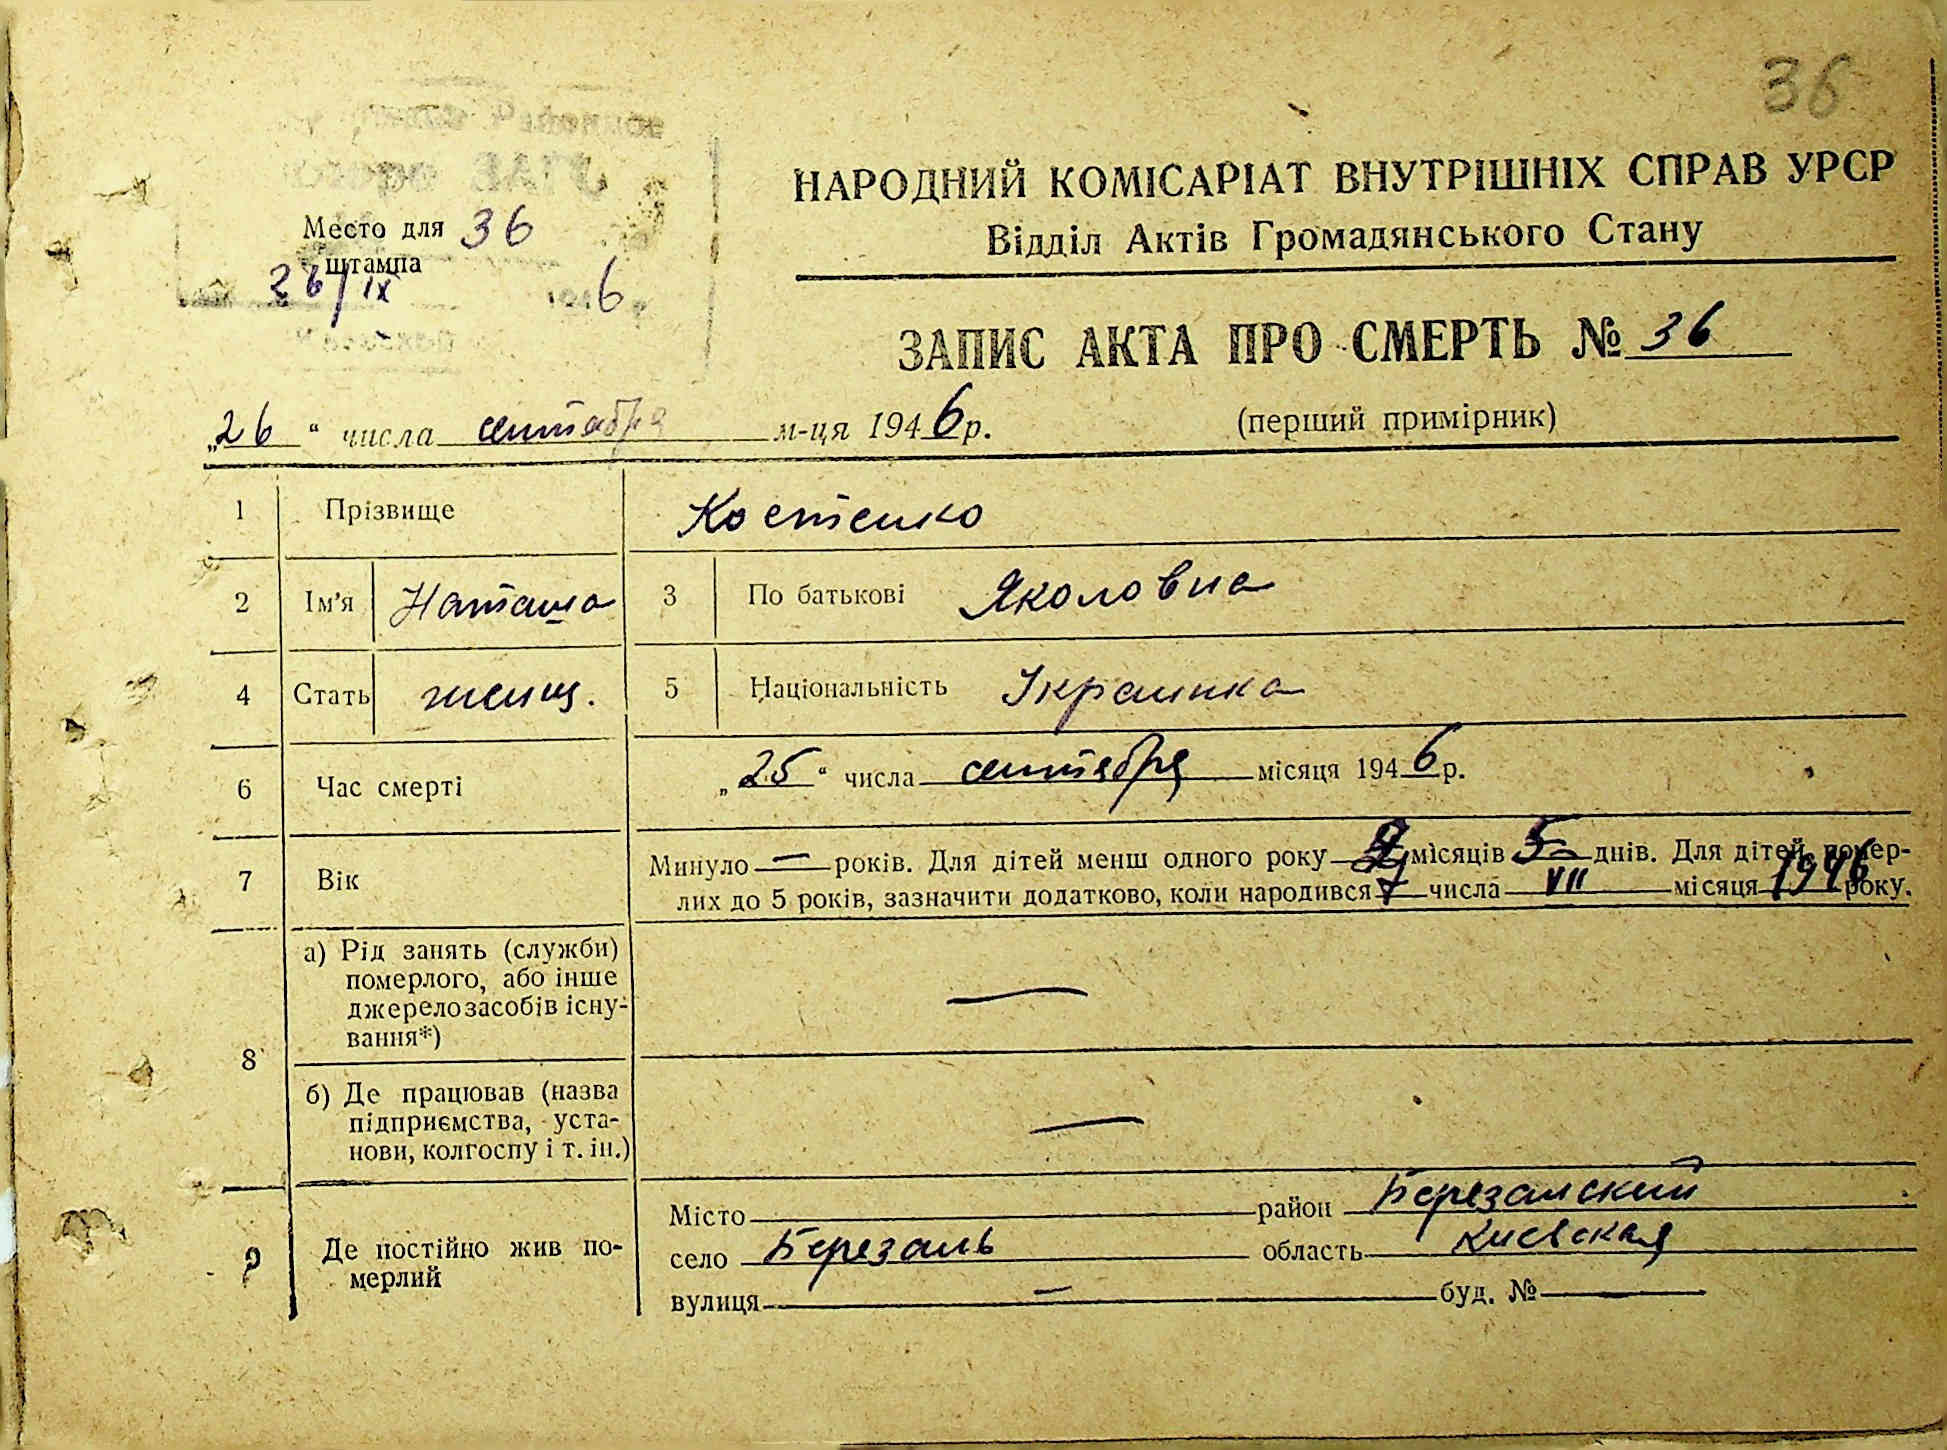 36
НАРОДНИЙ КОМІСАРІАТ ВНУТРІШНІХ СПРАВ УРСР
Відділ Актів Громадянського Стану
Место для 36
штампа
26/IX 6
ЗАПИС АКТА ПРО СМЕРТЬ № 36
„26“ числа сентября м-ця 1946 р.
(перший примірник)
1 Прізвище Костенко
2 Ім'я Наташа 3 По батькові Яколовна
4 Стать женщ. 5 Національність Украинка
6 Час смерті „25“ числа сентября місяця 1946 р.
7 Вік Минуло — років. Для дітей менш одного року місяців 5 днів. Для дітей, помер-
лих до 5 років, зазначити додатково, коли народився 7 числа VII місяця 1946 року.
8
а) Рід занять (служби)
померлого, або інше
джерело засобів існу-
вання*)
—
б) Де працював (назва
підприємства, уста-
нови, колгоспу і т. ін.)
—
9 Де постійно жив по-
мерлий
Місто район Березанский
село Березань область Киевская
вулиця — буд. №